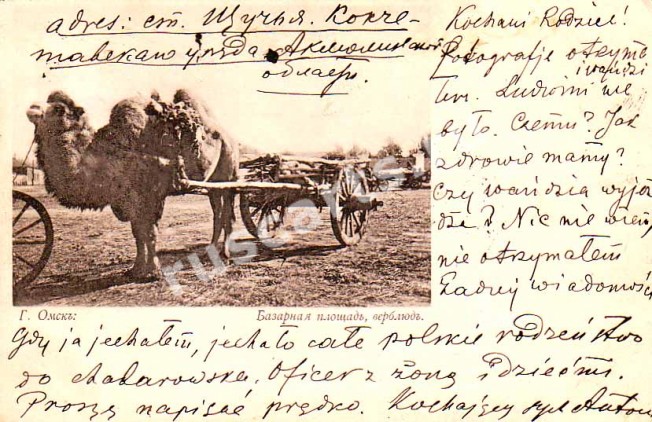 adres: ст. Щучья. Кокче-
тавскаго уѣзда Акмолинской
област.
Kochani Rodzice!
Fotografje otrzym
i wandzi
Ludwini nie
było. Czemu? Jak
zdrowie mamy?
Czy wandzia wyjeż
dża? Nic nie wiem,
nie otrzymałem
żadnej wiadomości
Г. Омскъ:
Базарная площадь, верблюдъ.
Gdy ja jechałem, jechało całe polskie rodzeństwo
do Chabarowska. Oficer z żoną i dziećmi.
Proszę napisać prędko. Kochający syn Antoni
ruscards.